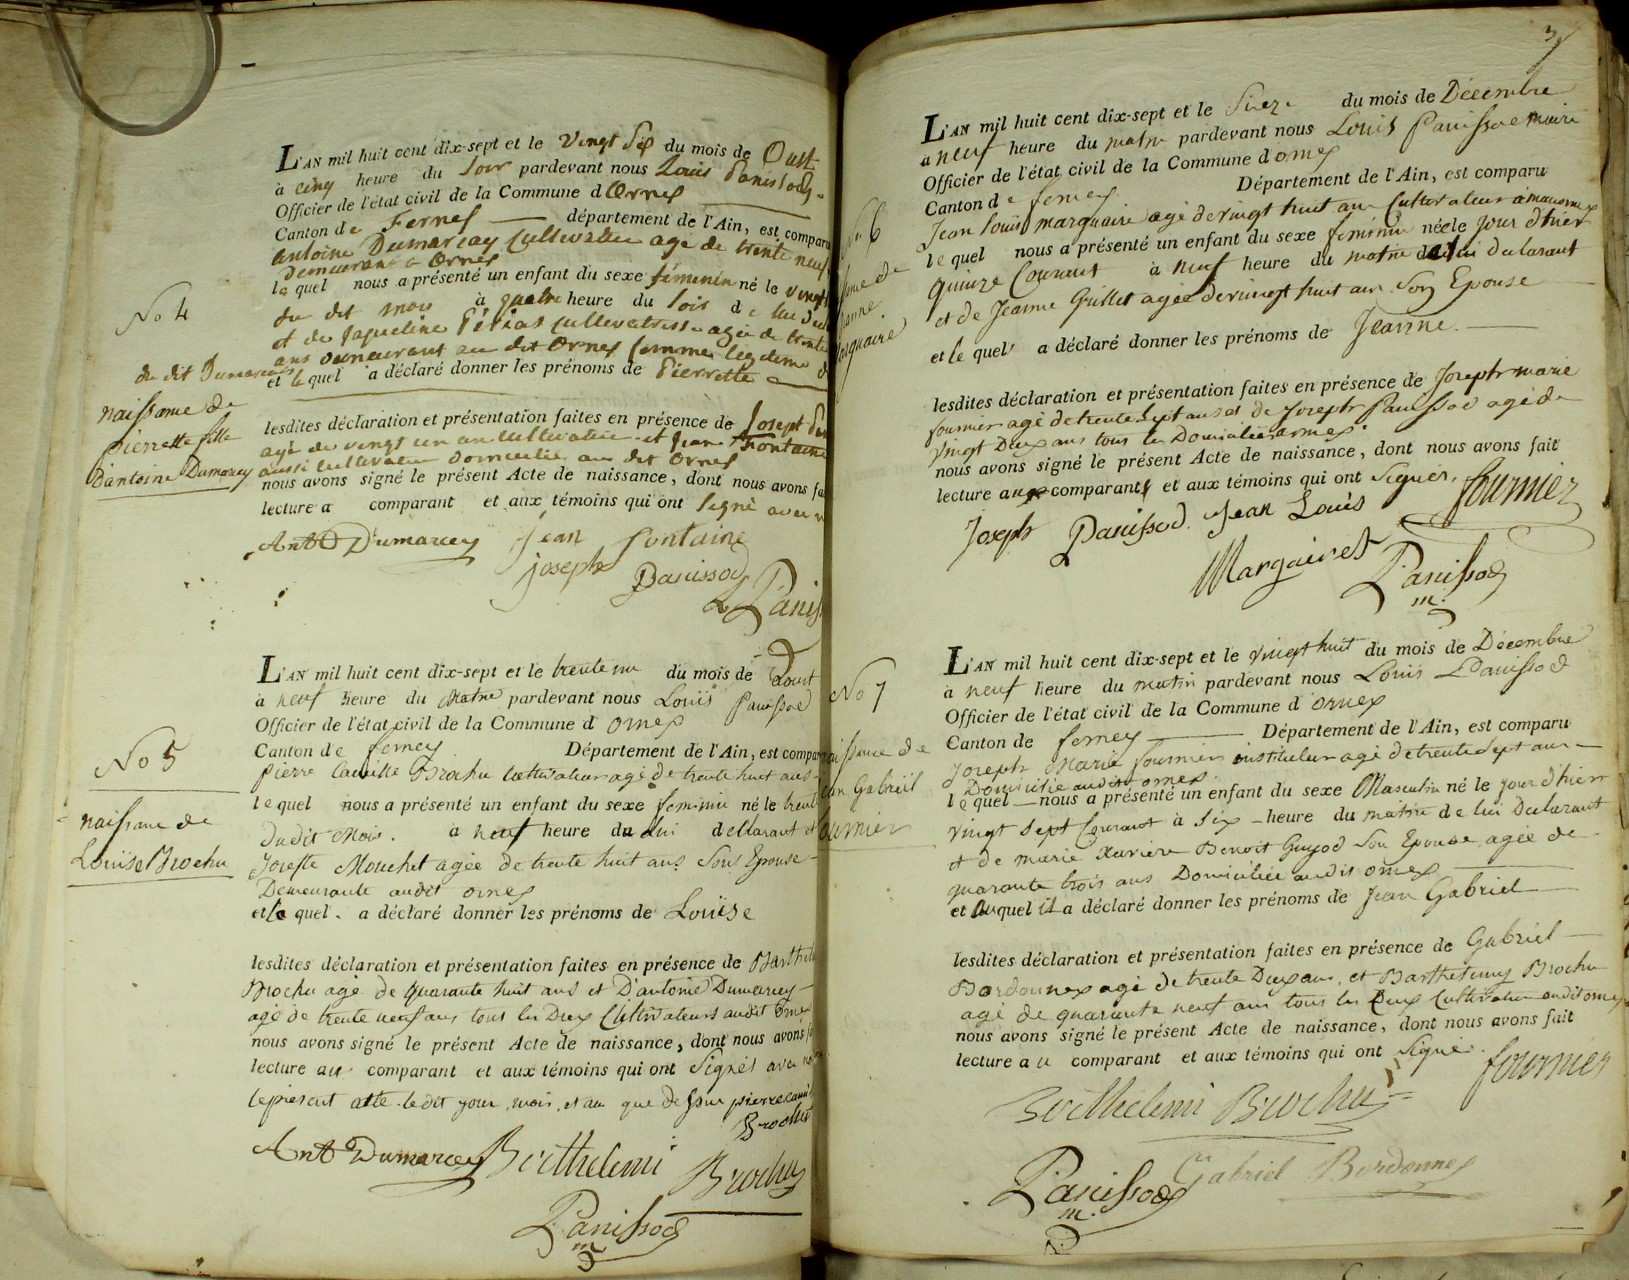 No 4
du dit Dumarcey
naissance de
pierrette fille
d'antoine Dumarcey
L'AN mil huit cent dix-sept et le vingt Six du mois de Oust
à cinq heure du soir pardevant nous Louis Panissod
Officier de l'état civil de la Commune d Ornex
Canton de Fernex département de l'Ain, est comparu
antoine Dumarcay Cultivateur agé de trente neuf
demeurant à Ornex
le quel nous a présenté un enfant du sexe féminin né le vingt
du dit mois à quatre heure du soir de lui
et de Jaqueline cultivatrice agée de trente
ans demeurant au dit Ornex femme
et le quel a déclaré donner les prénoms de Pierrette
lesdites déclaration et présentation faites en présence de Joseph
agé de vingt un an cultivateur et Jean Fontaine
aussi cultivateur domicilié au dit Ornex
nous avons signé le présent Acte de naissance, dont nous avons
lecture a comparant et aux témoins qui ont signé avec
Ant Dumarcey Jean fontaine
joseph Panissod
Panis
No 5
naissance de
Louise Brochu
L'AN mil huit cent dix-sept et le trente un du mois de Aout
à neuf heure du Matin pardevant nous Louis Panissod
Officier de l'état civil de la Commune d ornex
Canton de ferney Département de l'Ain, est comparu
pierre Camille Brochu cultivateur agé de trente huit ans
le quel nous a présenté un enfant du sexe feminin né le trente
Dudit Mois. à neuf heure du lui déclarant et
Mouchet agée de trente huit ans Son Epouse
Demeurante audit ornex
et le quel a déclaré donner les prénoms de Louïse
lesdites déclaration et présentation faites en présence de Barthele
Brochu agé de quarante huit ans et D'antoine Dumarcey
agé de trente neuf ans tous les Deux Cultivateurs audit ornex
nous avons signé le présent Acte de naissance, dont nous avons
lecture au comparant et aux témoins qui ont Signés avec
le présent acte le dit jour, mois, et an que dessus pierre camille
Brochut
Ant Dumarcey Berthelemi Brochu
Panissod
m
3
No 6
Jeanne
L'AN mil huit cent dix-sept et le Sieze du mois de Décembre
à neuf heure du matin pardevant nous Louis Panissod maire
Officier de l'état civil de la Commune d ornex
Canton de ferney Département de l'Ain, est comparu
Jean Louis marquaire agé de vingt huit an Cultivateur
le quel nous a présenté un enfant du sexe feminin née le Jour d'hier
quinze Courant à neuf heure du matin de lui declarant
et de Jeanne Grillet agée de vingt huit an Son Epouse
et le quel a déclaré donner les prénoms de Jeanne.
lesdites déclaration et présentation faites en présence de Joseph marie
fournier agé de trente Sept ans et de Joseph Panissod agé de
vingt Deux ans tous les Domiciliés ornex.
nous avons signé le présent Acte de naissance, dont nous avons fait
lecture aux comparants et aux témoins qui ont signés. fournier
Joseph Panissod. Jean Louis
Marquiret
Panissod
m.
No 7
naissance de
Jean Gabriël
fournier
L'AN mil huit cent dix-sept et le vingt huit du mois de Décembre
à neuf heure du matin pardevant nous Louis Panissod
Officier de l'état civil de la Commune d'ornex
Canton de ferney Département de l'Ain, est comparu
Joseph Marie fournier instituteur agé de trente Sept ans
Domicilié audit ornex
le quel nous a présenté un enfant du sexe Masculin né le jour d'hier
vingt Sept Courant à Six heure du matin de lui Déclarant
et de marie Xaviere Benoit Guyod Son Epouse agée de
quarante trois ans Domiciliée audit ornex
et auquel il a déclaré donner les prénoms de Jean Gabriel
lesdites déclaration et présentation faites en présence de Gabriel
Bordonnex agé de trente Deux ans, et Barthelemy Brochu
agé de quarante neuf ans tous les Deux Cultivateurs audit ornex
nous avons signé le présent Acte de naissance, dont nous avons fait
lecture au comparant et aux témoins qui ont Signés. fournier
Berthelemi Brochu
Panissod Gabriel Bordonnex
m.